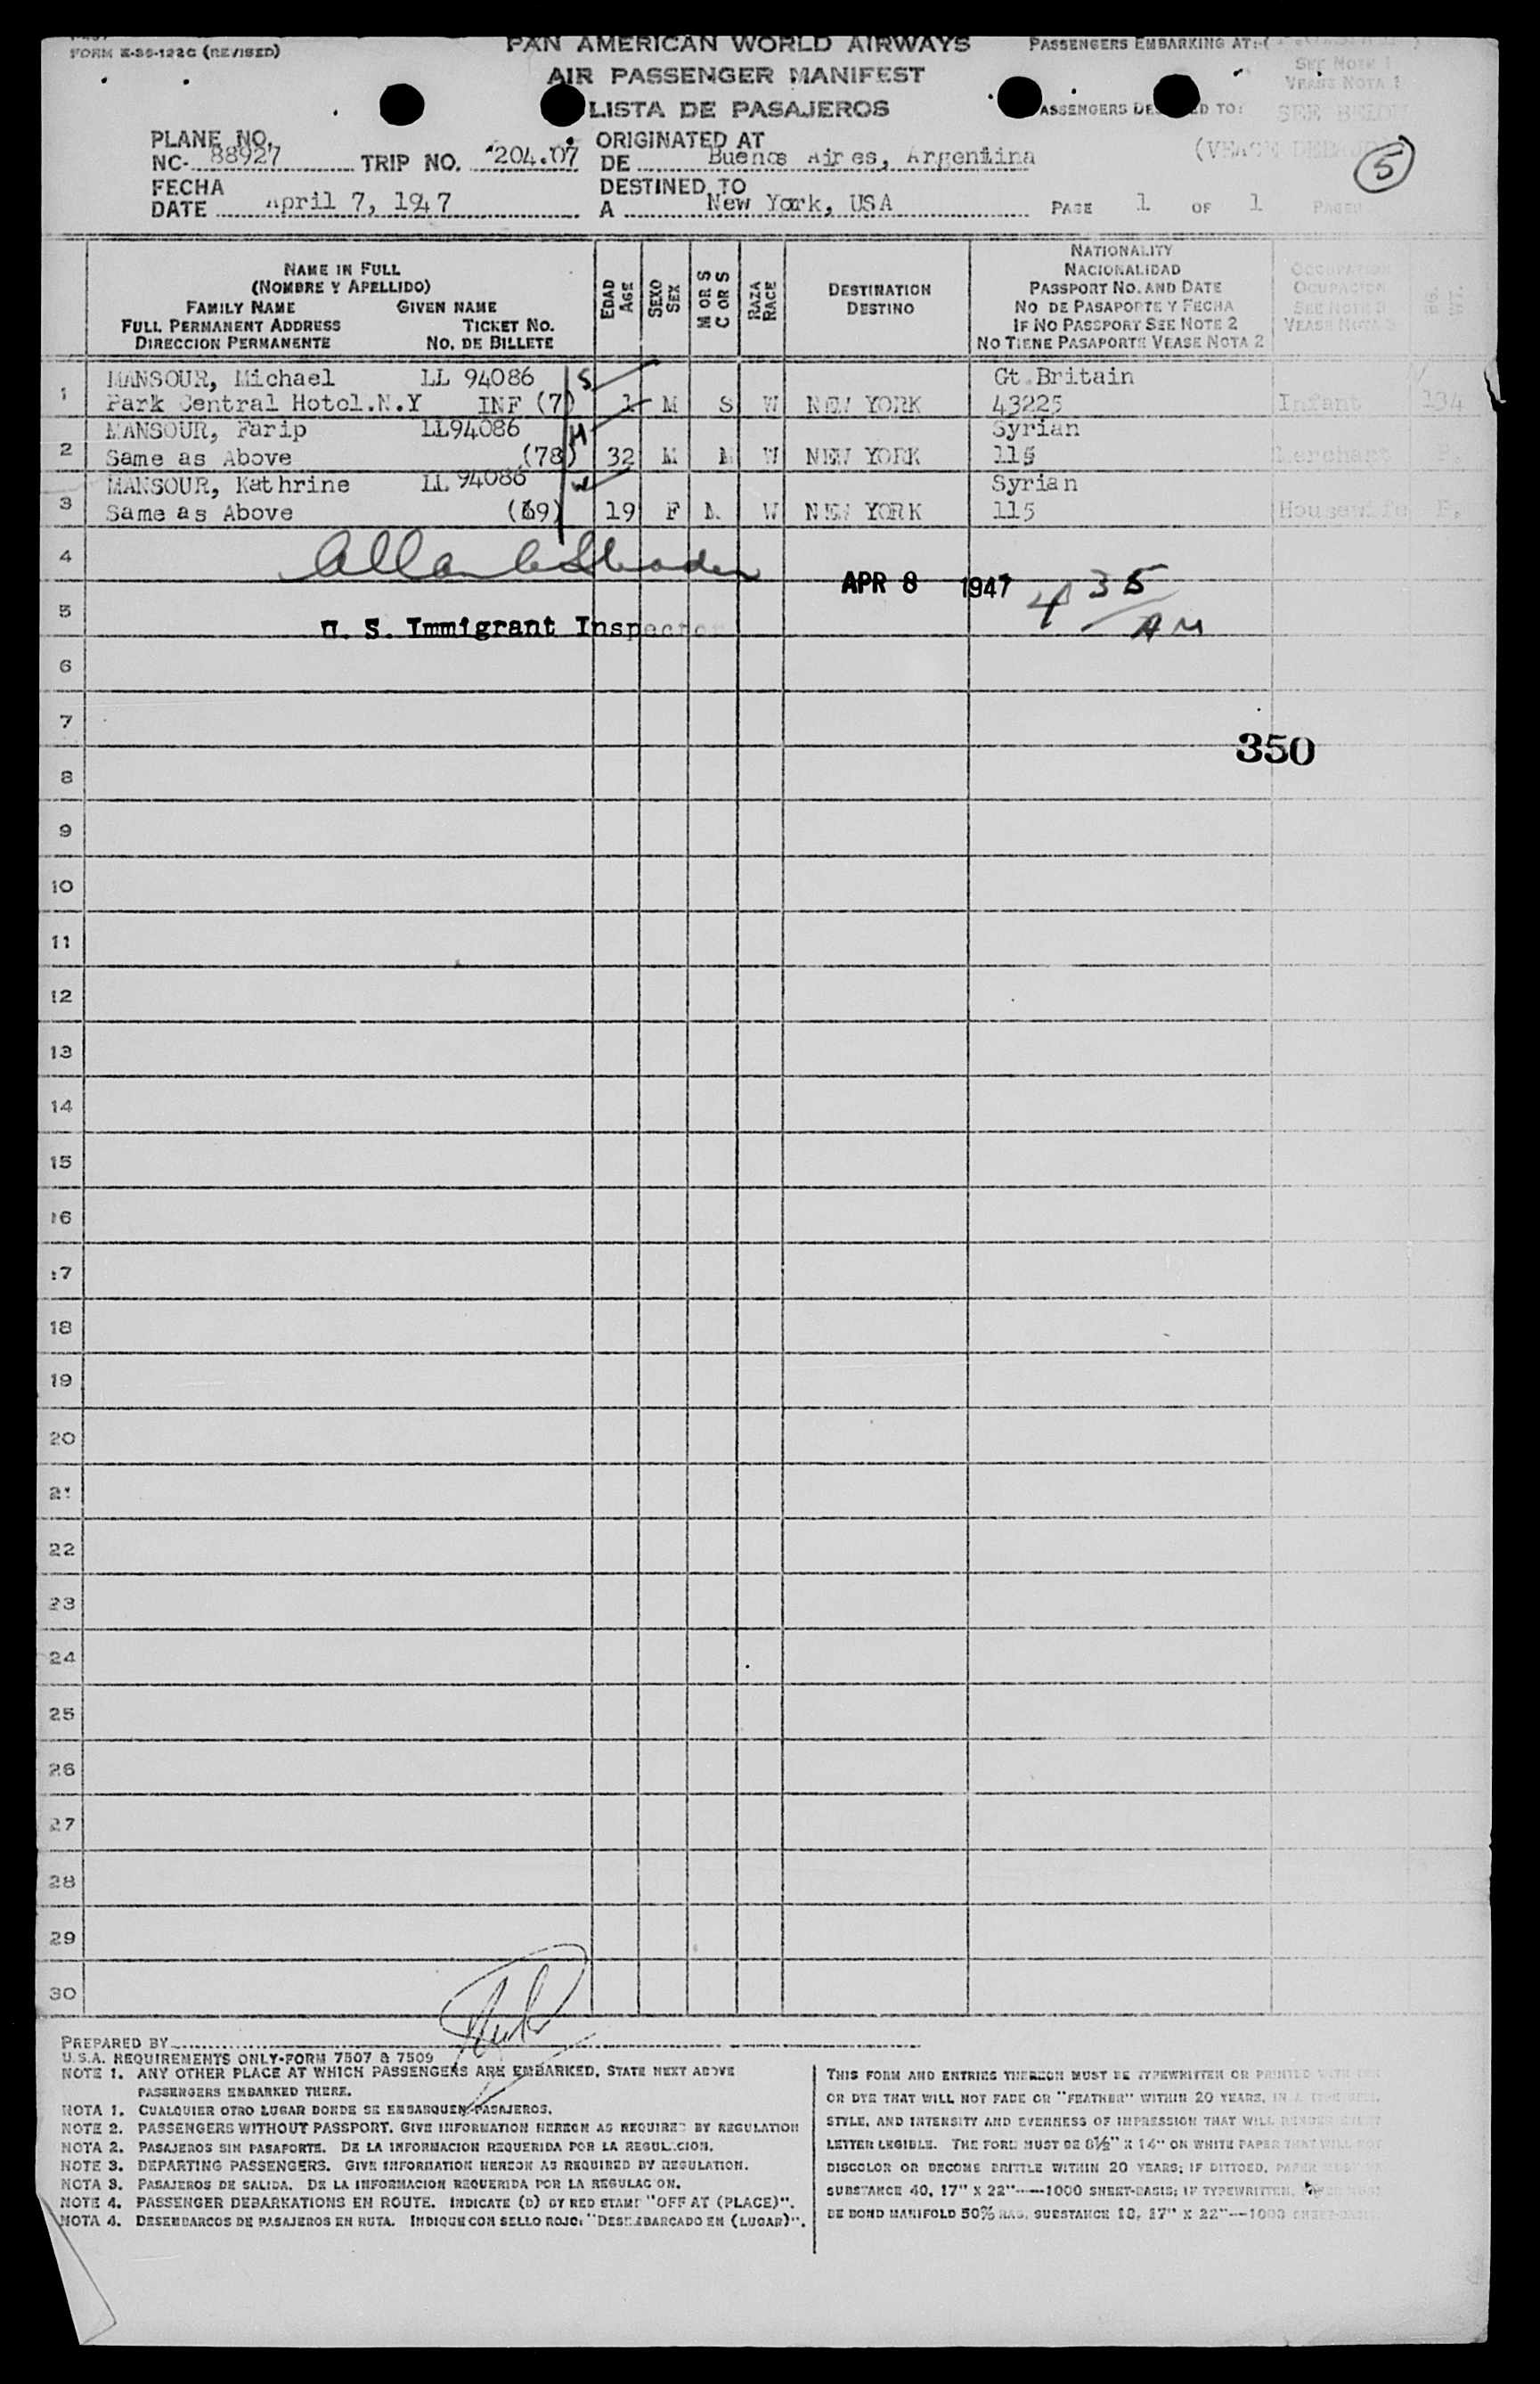 FORM K-36-122C (REVISED)
PAN AMERICAN WORLD AIRWAYS
PASSENGERS EMBARKING AT:
AIR PASSENGER MANIFEST
SEE NOTE 1
VEASE NOTA 1
LISTA DE PASAJEROS
PASSENGERS DES ED TO:
SEE BELOW
PLANE NO.
NC- 88927 TRIP NO. 204.07
ORIGINATED AT
DE Buenos Aires, Argentina
(5)
FECHA
DATE April 7, 1947
DESTINED TO
A New York, USA
PAGE 1 OF 1 PAGES
NAME IN FULL
(NOMBRE Y APELLIDO)
FAMILY NAME GIVEN NAME
FULL PERMANENT ADDRESS TICKET NO.
DIRECCION PERMANENTE NO. DE BILLETE
EDAD
AGE
SEXO
SEX
M OR S
C OR S
RAZA
RACE
DESTINATION
DESTINO
NATIONALITY
NACIONALIDAD
PASSPORT NO. AND DATE
NO DE PASAPORTE Y FECHA
IF NO PASSPORT SEE NOTE 2
NO TIENE PASAPORTE VEASE NOTA 2
OCCUPATION
OCUPACION
SEE NOTE 3
VEASE NOTA 3
1 MANSOUR, Michael LL 94086 S Gt.Britain
Park Central Hotel.N.Y INF (7) 1 M S W NEW YORK 43225 Infant 134
2 MANSOUR, Farip LL94086 H Syrian
Same as Above (78) 32 M M W NEW YORK 115 Merchant
3 MANSOUR, Kathrine LL 94086 W Syrian
Same as Above (69) 19 F M W NEW YORK 115 Housewife
4
APR 8 1947 4 35 AM
5
U. S. Immigrant Inspector
6
7
350
8
9
10
11
12
13
14
15
16
17
18
19
20
21
22
23
24
25
26
27
28
29
30
PREPARED BY
U.S.A. REQUIREMENTS ONLY-FORM 7507 & 7509
NOTE 1. ANY OTHER PLACE AT WHICH PASSENGERS ARE EMBARKED, STATE NEXT ABOVE
PASSENGERS EMBARKED THERE.
NOTA 1. CUALQUIER OTRO LUGAR DONDE SE EMBARQUEN PASAJEROS.
NOTE 2. PASSENGERS WITHOUT PASSPORT. GIVE INFORMATION HEREON AS REQUIRED BY REGULATION
NOTA 2. PASAJEROS SIN PASAPORTE. DE LA INFORMACION REQUERIDA POR LA REGULACION.
NOTE 3. DEPARTING PASSENGERS. GIVE INFORMATION HEREON AS REQUIRED BY REGULATION.
NOTA 3. PASAJEROS DE SALIDA. DE LA INFORMACION REQUERIDA POR LA REGULAC ON.
NOTE 4. PASSENGER DEBARKATIONS EN ROUTE. INDICATE (D) BY RED STAMP "OFF AT (PLACE)".
NOTA 4. DESEMBARCOS DE PASAJEROS EN RUTA. INDIQUE CON SELLO ROJO: "DESEMBARCADO EN (LUGAR)".
THIS FORM AND ENTRIES THEREON MUST BE TYPEWRITTEN OR PRINTED WITH INK
OR DYE THAT WILL NOT FADE OR "FEATHER" WITHIN 20 YEARS, IN A
STYLE, AND INTENSITY AND EVENNESS OF IMPRESSION THAT WILL RENDER EVERY
LETTER LEGIBLE. THE FORM MUST BE 8½" X 14" ON WHITE PAPER THAT WILL NOT
DISCOLOR OR BECOME BRITTLE WITHIN 20 YEARS; IF DITTOED, PAPER MUST BE
SUBSTANCE 40, 17" X 22"----1000 SHEET-BASIS; IF TYPEWRITTEN, PAPER MUST
BE BOND MANIFOLD 50% RAG, SUBSTANCE 18, 17" X 22"---1000 SHEET-BASIS.